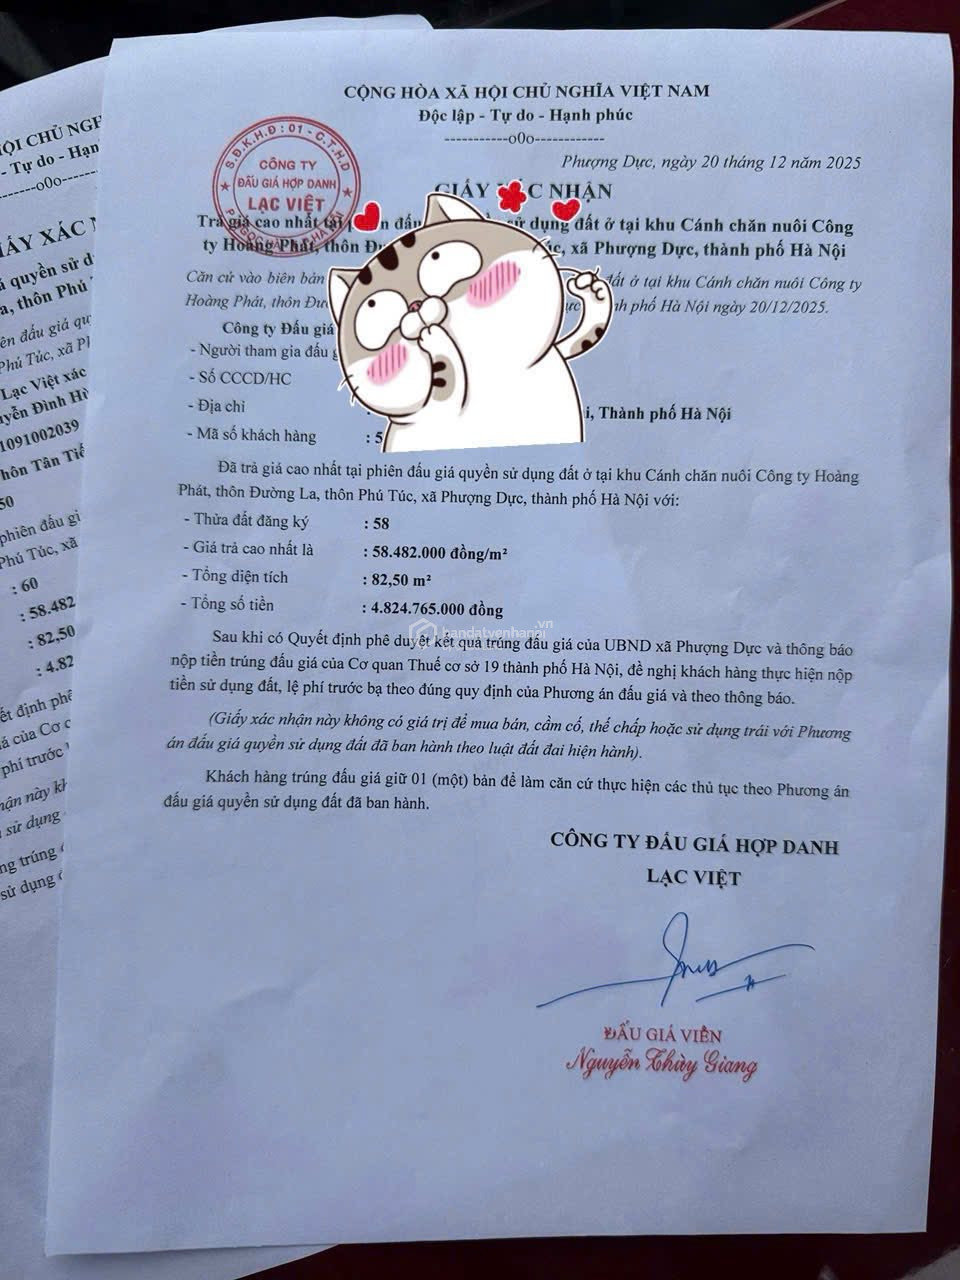 CỘNG HÒA XÃ HỘI CHỦ NGHĨA VIỆT NAM
Độc lập - Tự do - Hạnh phúc
-----------o0o------------
Phượng Dực, ngày 20 tháng 12 năm 2025
S.Đ.K.H.Đ : 01 - C.T.H.D
CÔNG TY
ĐẤU GIÁ HỢP DANH
LẠC VIỆT
GIẤY XÁC NHẬN
Trả giá cao nhất tại đấu sử dụng đất ở tại khu Cánh chăn nuôi Công
ty Hoàng Phát, thôn xã Phượng Dực, thành phố Hà Nội
Căn cứ vào biên bản đất ở tại khu Cánh chăn nuôi Công ty
Hoàng Phát, thôn thành phố Hà Nội ngày 20/12/2025.
Công ty Đấu giá
- Người tham gia đấu
- Số CCCD/HC
- Địa chỉ : Thành phố Hà Nội
- Mã số khách hàng : 5
Đã trả giá cao nhất tại phiên đấu giá quyền sử dụng đất ở tại khu Cánh chăn nuôi Công ty Hoàng
Phát, thôn Đường La, thôn Phú Túc, xã Phượng Dực, thành phố Hà Nội với:
- Thửa đất đăng ký : 58
- Giá trả cao nhất là : 58.482.000 đồng/m²
- Tổng diện tích : 82,50 m²
- Tổng số tiền : 4.824.765.000 đồng
bandatvenhanoi.vn
Sau khi có Quyết định phê duyệt kết quả trúng đấu giá của UBND xã Phượng Dực và thông báo
nộp tiền trúng đấu giá của Cơ quan Thuế cơ sở 19 thành phố Hà Nội, đề nghị khách hàng thực hiện nộp
tiền sử dụng đất, lệ phí trước bạ theo đúng quy định của Phương án đấu giá và theo thông báo.
(Giấy xác nhận này không có giá trị để mua bán, cầm cố, thế chấp hoặc sử dụng trái với Phương
án đấu giá quyền sử dụng đất đã ban hành theo luật đất đai hiện hành).
Khách hàng trúng đấu giá giữ 01 (một) bản để làm căn cứ thực hiện các thủ tục theo Phương án
đấu giá quyền sử dụng đất đã ban hành.
CÔNG TY ĐẤU GIÁ HỢP DANH
LẠC VIỆT
ĐẤU GIÁ VIÊN
Nguyễn Thùy Giang
HỘI CHỦ
- Tự do - Hạnh
---o0o---
GIẤY XÁC
quyền sử
thôn Phú
đấu giá
Phú Túc, xã
Lạc Việt xác
Đình
1091002039
hôn Tân
50
phiên đấu
Phú Túc, xã
: 60
: 58.482
: 82,50
: 4.82
định
của Cơ
phí trước
này
sử dụng
trúng
sử dụng